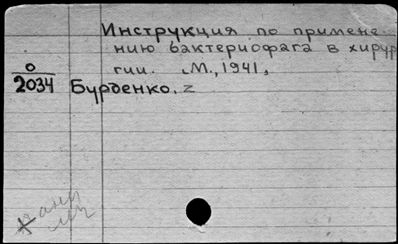 Инструкция по примене-
нию бактериофага в хирур
гии. М., 1941,
0
2034 Бурденко. 2